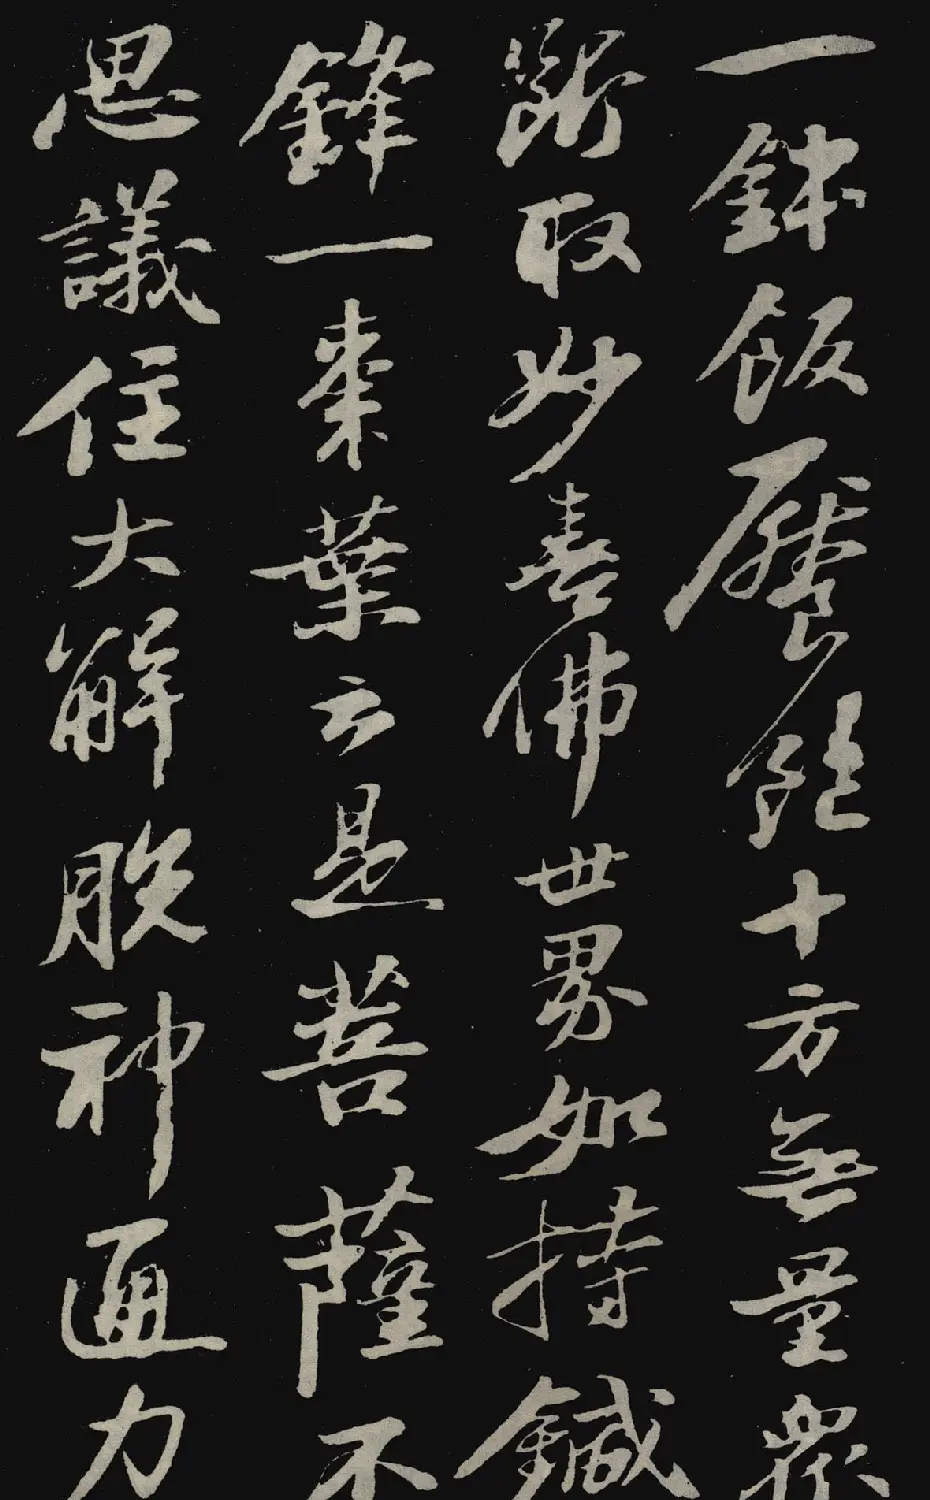 一鉢飯饜飽十方無量衆
斷取妙喜佛世界如持鍼
鋒一棗葉云是菩薩不
思議住大解脫神通力